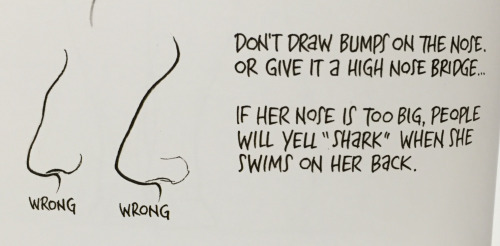 DON'T DRAW BUMPS ON THE NOSE.
OR GIVE IT A HIGH NOSE BRIDGE...
IF HER NOSE IS TOO BIG, PEOPLE
WILL YELL "SHARK" WHEN SHE
SWIMS ON HER BACK.
WRONG
WRONG